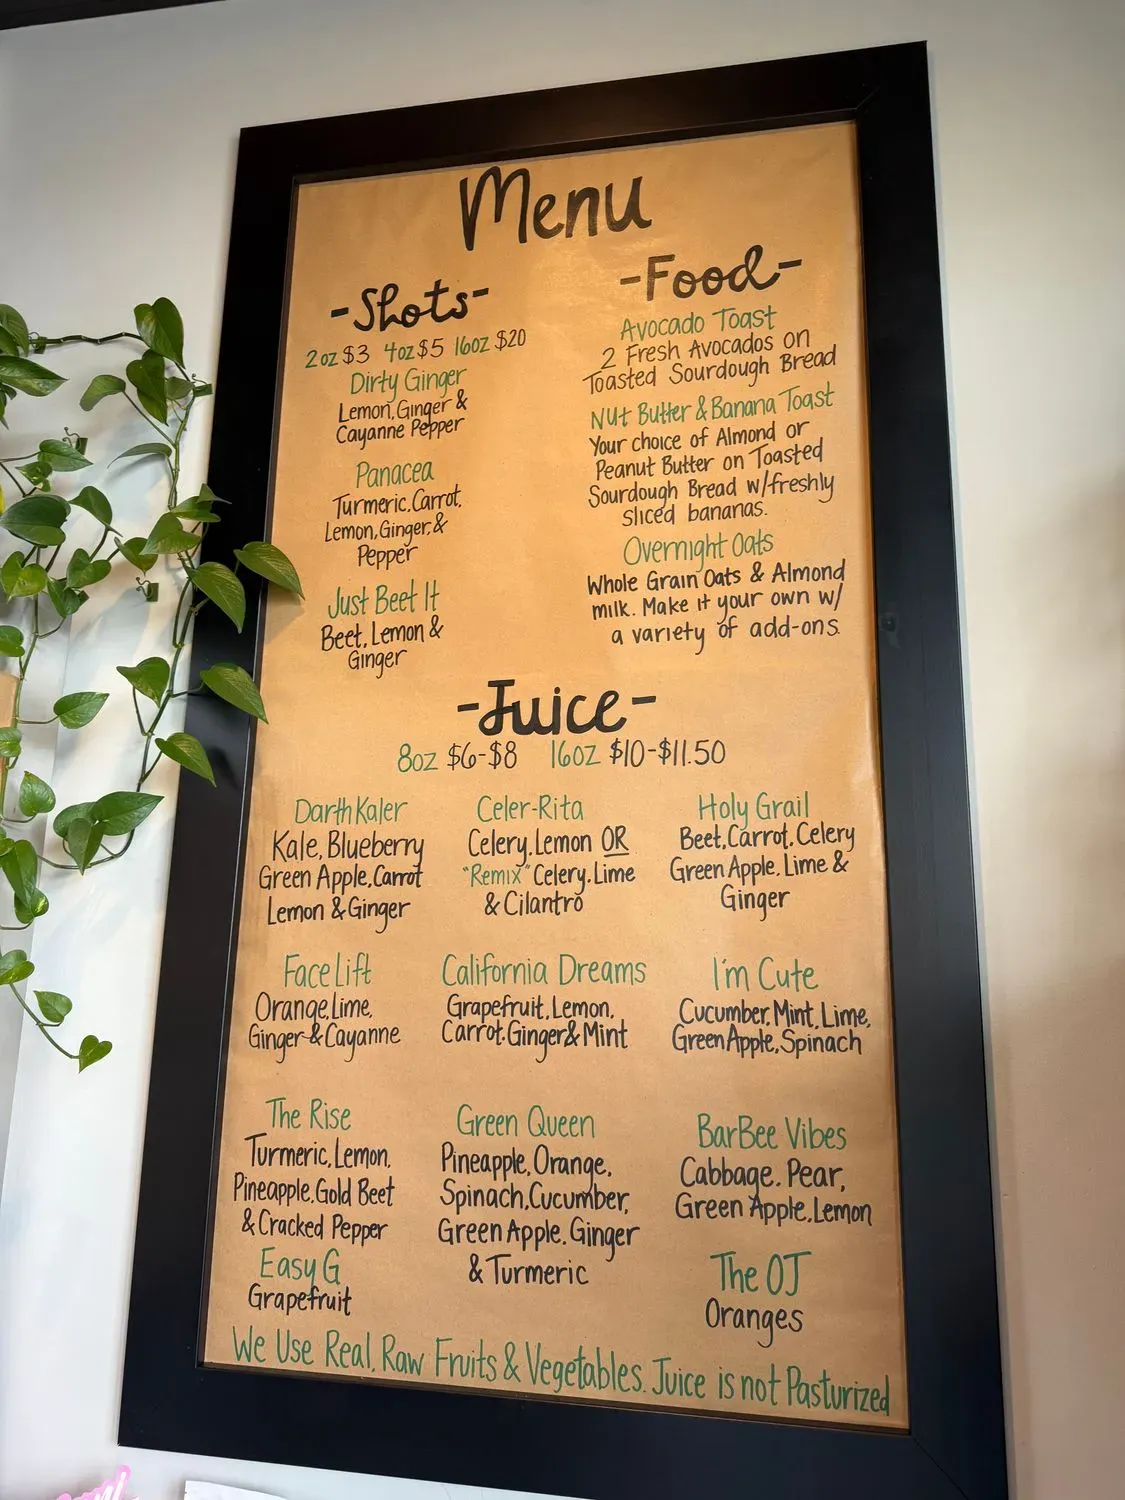 Menu
-Shots-
2oz $3 4oz $5 16oz $20
Dirty Ginger
Lemon, Ginger &
Cayanne Pepper
Panacea
Turmeric, Carrot,
Lemon, Ginger, &
Pepper
Just Beet It
Beet, Lemon &
Ginger
-Food-
Avocado Toast
2 Fresh Avocados on
Toasted Sourdough Bread
Nut Butter & Banana Toast
Your choice of Almond or
Peanut Butter on Toasted
Sourdough Bread w/freshly
sliced bananas.
Overnight Oats
Whole Grain Oats & Almond
milk. Make it your own w/
a variety of add-ons.
-Juice-
8oz $6-$8 16oz $10-$11.50
Darth Kaler
Kale, Blueberry
Green Apple, Carrot
Lemon & Ginger
Celer-Rita
Celery, Lemon OR
"Remix" Celery, Lime
& Cilantro
Holy Grail
Beet, Carrot, Celery
Green Apple, Lime &
Ginger
Face Lift
Orange, Lime,
Ginger & Cayanne
California Dreams
Grapefruit, Lemon,
Carrot, Ginger & Mint
I'm Cute
Cucumber, Mint, Lime,
Green Apple, Spinach
The Rise
Turmeric, Lemon,
Pineapple, Gold Beet
& Cracked Pepper
Green Queen
Pineapple, Orange,
Spinach, Cucumber,
Green Apple, Ginger
& Turmeric
BarBee Vibes
Cabbage, Pear,
Green Apple, Lemon
Easy G
Grapefruit
The OJ
Oranges
We Use Real, Raw Fruits & Vegetables. Juice is not Pasturized